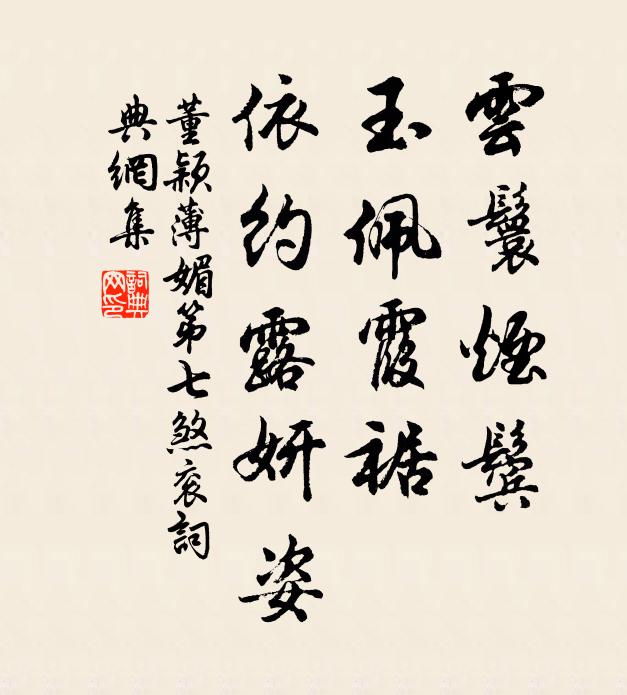 雲鬟煙鬢
玉佩霞裾
依約露妍姿
董穎薄媚第七煞袞詞
典網集
詞典網印